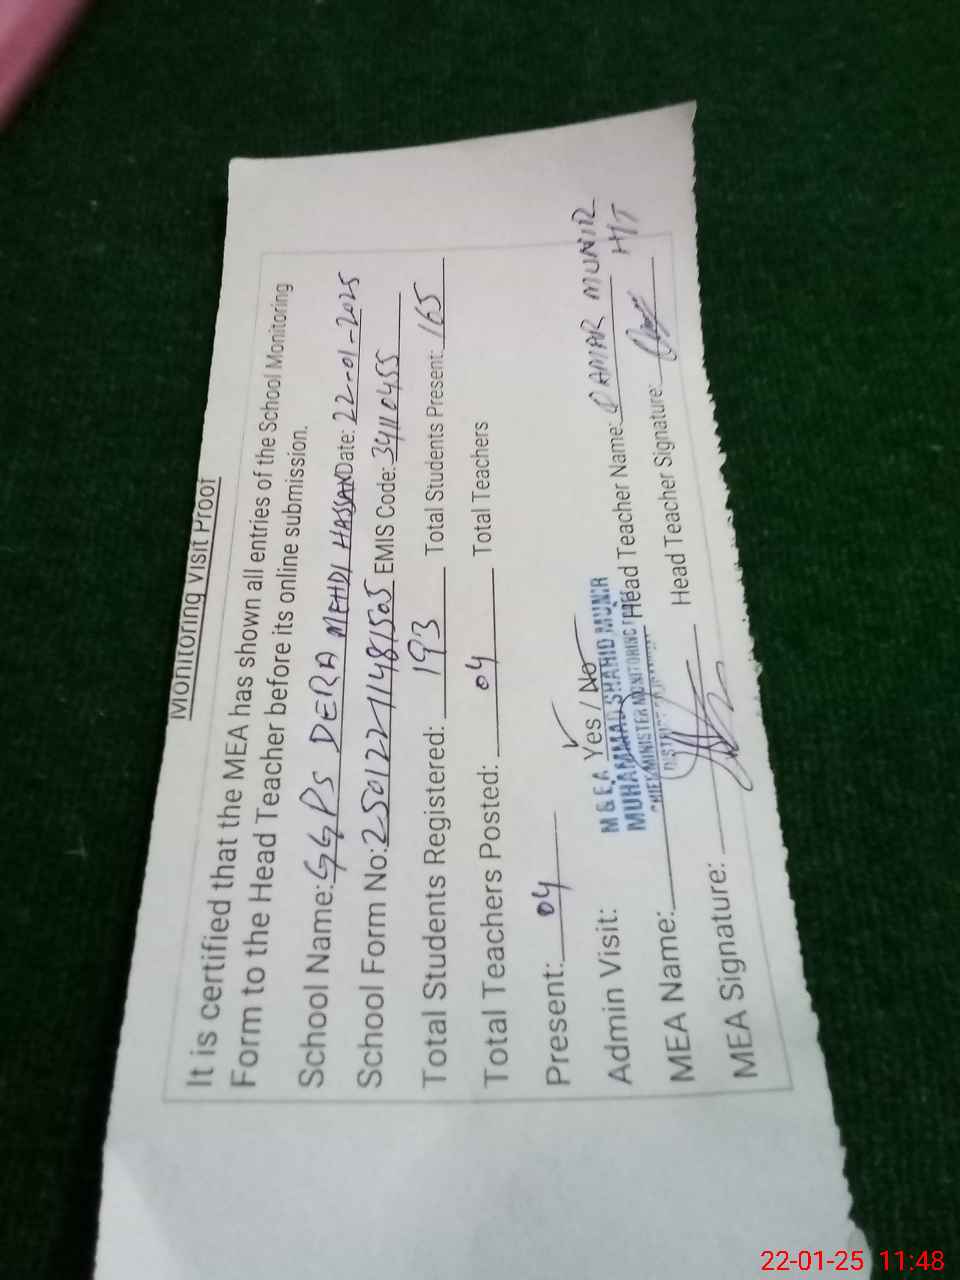 Monitoring Visit Proof
It is certified that the MEA has shown all entries of the School Monitoring
Form to the Head Teacher before its online submission.
School Name: GGPS DERA MEHDI HASSAN Date: 22-01-2025
School Form No: 250122711481505 EMIS Code: 34110455
Total Students Registered: 193 Total Students Present: 165
Total Teachers Posted: 04 Total Teachers
Present: 04
Admin Visit: Yes / No
M & E A
MUHAMMAD SHAHID MUNIR
CHIEF MINISTER MONITORING
MEA Name: Head Teacher Name: QAMAR MUNIR
H/T
MEA Signature: Head Teacher Signature:
22-01-25 11:48